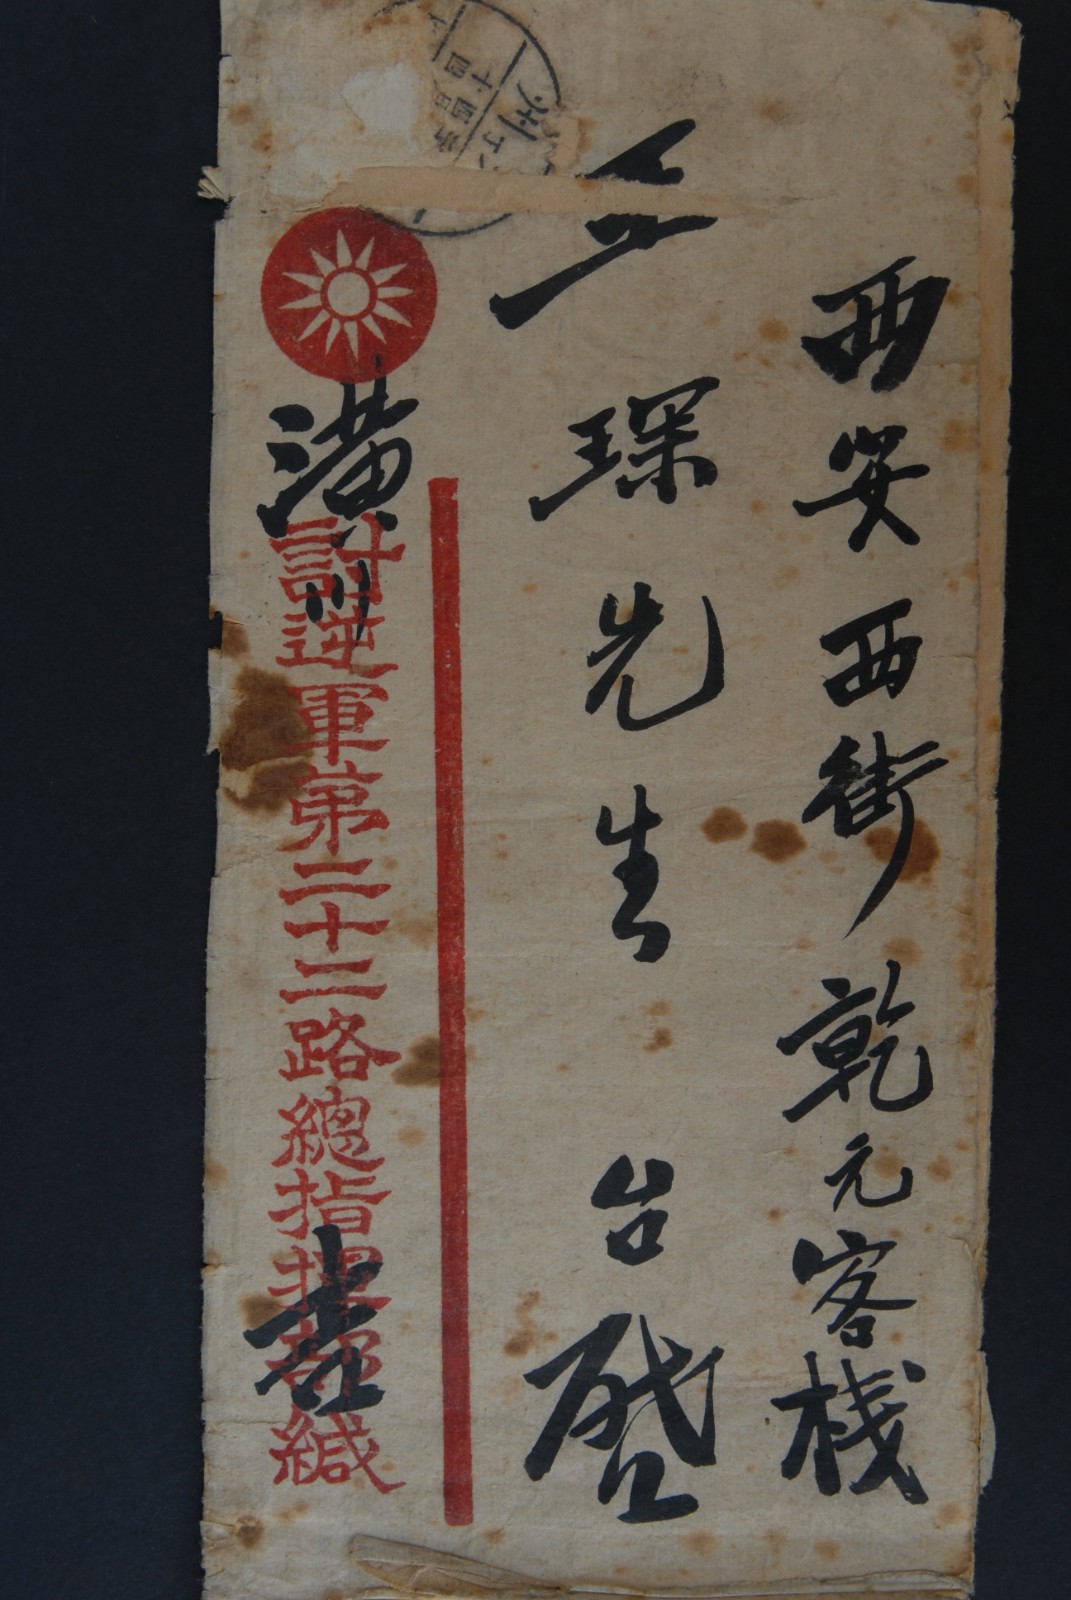 西安西街乾元客栈
王琛先生台啟
潢川
討逆軍第二十二路總指揮部緘
州
十四